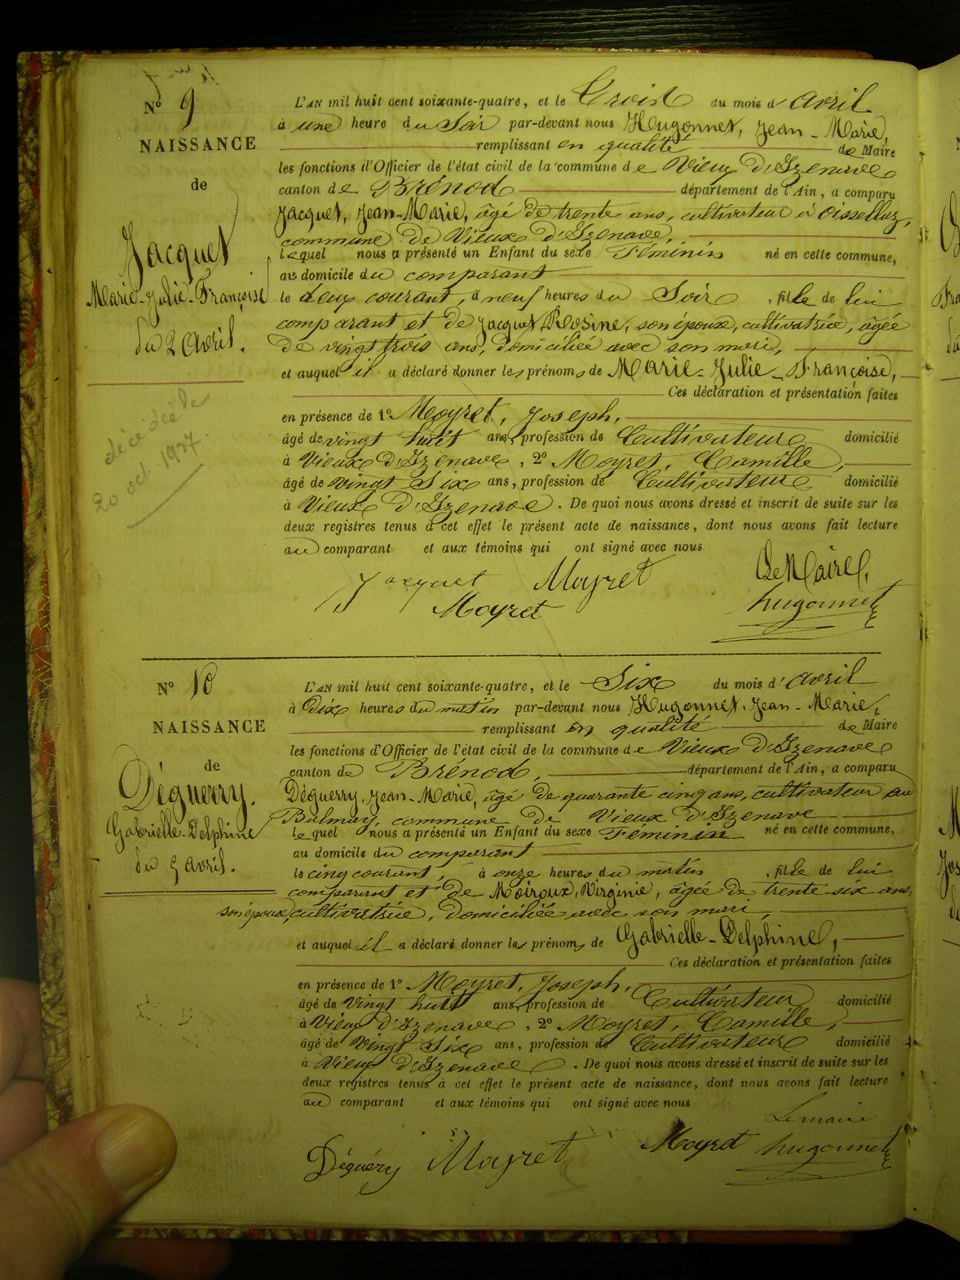 N° 9
NAISSANCE
de
Jacquet
Marie-Julie-Françoise
du 2 Avril.
décédée le
20 oct. 1937
L'AN mil huit cent soixante-quatre, et le Trois du mois d'Avril
à une heure du Soir par-devant nous Hugonnet, Jean-Marie,
remplissant en qualité de Maire
les fonctions d'Officier de l'état civil de la commune de Vieux d'Izenave
canton de Brénod département de l'Ain, a comparu
Jacquet, Jean-Marie, âgé de trente ans, cultivateur à Oisselaz,
commune de Vieux d'Izenave,
lequel nous a présenté un Enfant du sexe Féminin né en cette commune,
au domicile du comparant
le deux courant, à neuf heures du Soir, fille de lui
comparant et de Jacquet, Rosine, son épouse, cultivatrice, âgée
de vingt trois ans, domiciliée avec son mari,
et auquel il a déclaré donner les prénoms de Marie-Julie-Françoise,
Ces déclaration et présentation faites
en présence de 1° Moyret, Joseph,
âgé de vingt huit ans, profession de Cultivateur domicilié
à Vieux d'Izenave, 2° Moyret, Camille,
âgé de vingt Six ans, profession de Cultivateur domicilié
à Vieux d'Izenave. De quoi nous avons dressé et inscrit de suite sur les
deux registres tenus à cet effet le présent acte de naissance, dont nous avons fait lecture
au comparant et aux témoins qui ont signé avec nous
Jacquet Moyret Le Maire,
Moyret hugonnet
N° 10
NAISSANCE
de
Déguerry.
Gabrielle-Delphine
du 5 avril.
L'AN mil huit cent soixante-quatre, et le Six du mois d'avril
à Dix heures du matin par-devant nous Hugonnet, Jean-Marie,
remplissant en qualité de Maire
les fonctions d'Officier de l'état civil de la commune de Vieux d'Izenave
canton de Brénod, département de l'Ain, a comparu
Déguerry, Jean-Marie, âgé de quarante cinq ans, cultivateur au
Balmay, commune de Vieux d'Izenave
lequel nous a présenté un Enfant du sexe Féminin né en cette commune,
au domicile du comparant
le cinq courant, à onze heures du matin, fille de lui
comparant et de Moiroux, Virginie, âgée de trente six ans,
son épouse, cultivatrice, domiciliée avec son mari,
et auquel il a déclaré donner les prénoms de Gabrielle-Delphine,
Ces déclaration et présentation faites
en présence de 1° Moyret, Joseph,
âgé de vingt huit ans, profession de Cultivateur domicilié
à Vieux d'Izenave, 2° Moyret, Camille,
âgé de vingt Six ans, profession de Cultivateur domicilié
à Vieux d'Izenave. De quoi nous avons dressé et inscrit de suite sur les
deux registres tenus à cet effet le présent acte de naissance, dont nous avons fait lecture
au comparant et aux témoins qui ont signé avec nous
Le maire
Déguéry Moyret Moyret hugonnet